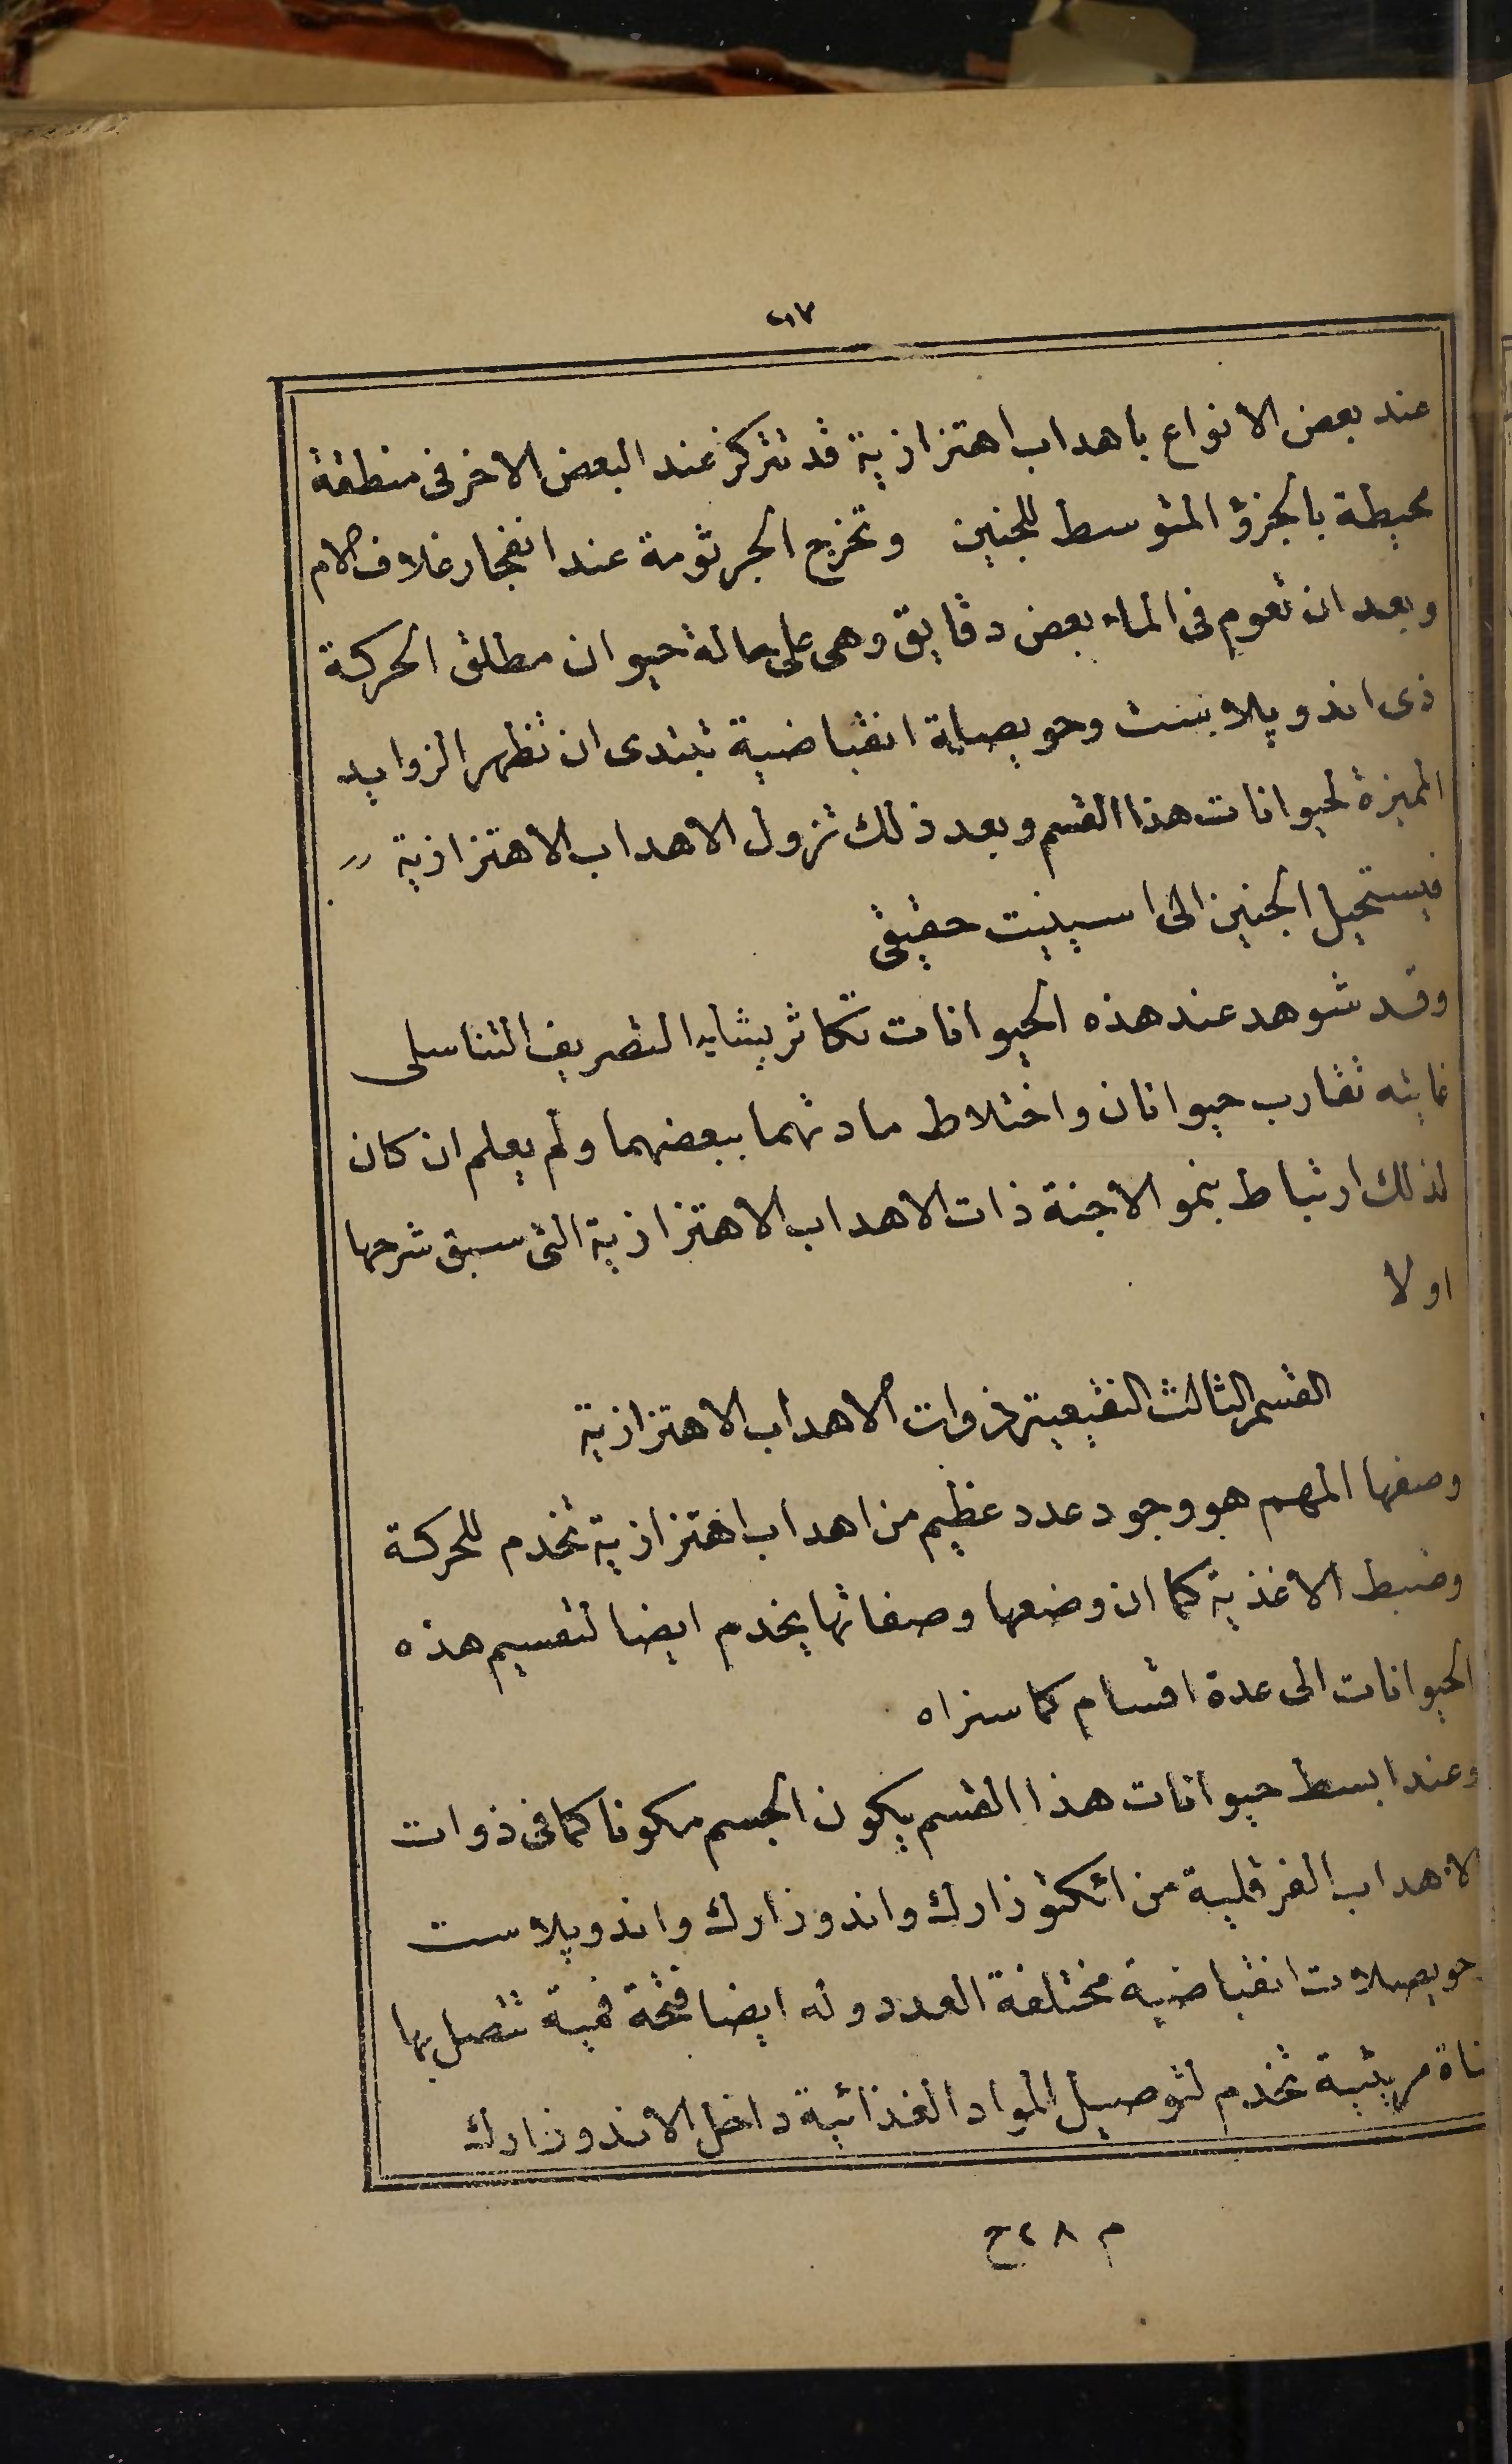 ٢١٧
عند بعض الانواع باهداب اهتزازية قد تتركز عند البعض الاخر فى منطقة
محيطة بالجزؤ المتوسط للجنين وتخرج الجرثومة عند انفجار غلاف الام
وبعد ان تعوم فى الماء بعض دقايق وهى على حالة حيوان مطلق الحركة
ذى اندوپلاست وحويصلة انقباضية تبتدى ان تظهر الزوايد
المميزة لحيوانات هذا القسم وبعد ذلك تزول الاهداب الاهتزازية
فيستحيل الجنين الى اسينيت حقيقى
وقد شوهد عند هذه الحيوانات تكاثر يشابه التصريف التناسلى
غايته تقارب حيوانان واختلاط مادتهما ببعضهما ولم يعلم ان كان
لذلك ارتباط بنمو الاجنة ذات الاهداب الاهتزازية التى سبق شرحها
اولا
القسم الثالث النقيعية ذوات الاهداب الاهتزازية
وصفها المهم هو وجود عدد عظيم من اهداب اهتزازية تخدم للحركة
وضبط الاغذية كما ان وضعها وصفاتها يخدم ايضا لتقسيم هذه
الحيوانات الى عدة اقسام كما سنراه
وعند ابسط حيوانات هذا القسم يكون الجسم مكونا كما فى ذوات
الاهداب الفرقلية من اتكتوزارك واندوزارك واندوپلاست
حويصلات انقباضية مختلفة العدد وله ايضا فتحة فمية تتصل بها
ناة مريئية تخدم لتوصيل المواد الغذائية داخل الاندوزارك
م ٢٨ ح